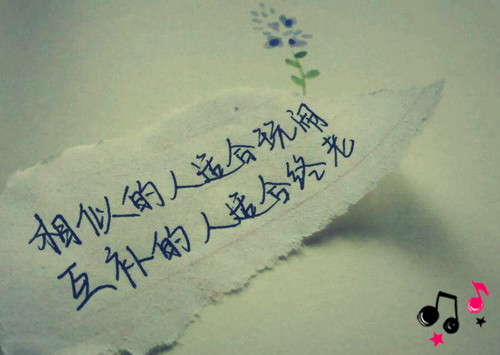 相似的人适合玩闹
互补的人适合终老